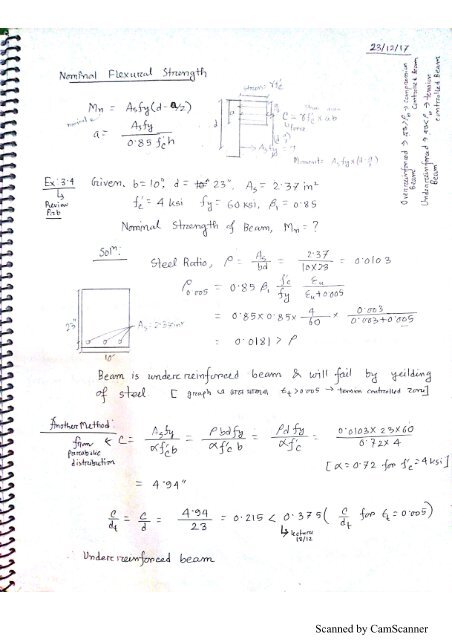 23/12/17
Nominal Flexural Strength
Mn = Asfy(d-a/2)
a = Asfy / 0.85 f'c b
C = γf'c × ab
Moment: Asfy × (d-a/2)
Overreinforced → ρ>ρb → compression controlled Beam
Beam
Underreinforced → ρ<ρb → tension controlled Beam
Beam
Ex: 3.4 Given, b=10", d = 23", As = 2.37 in²
Review Prob
f'c = 4 ksi fy = 60 ksi, β1 = 0.85
Nominal Strength of Beam, Mn = ?
Solⁿ:
Steel Ratio, ρ = As/bd = 2.37/10×23 = 0.0103
ρ0.005 = 0.85 β1 f'c/fy εu/εu+0.005
= 0.85×0.85× 4/60 × 0.003/0.003+0.005
= 0.0181 > ρ
23"
As = 2.37in²
10"
Beam is under reinforced beam & will fail by yeilding
of steel [ graph εt > 0.005 → tension controlled zone]
Another Method:
from parabolic distribution
C = Asfy/αf'c b = ρbdfy/αf'c b = ρdfy/αf'c = 0.0103×23×60/0.72×4
[α=0.72 for f'c=4ksi]
= 4.94"
c/dt = c/d = 4.94/23 = 0.215 < 0.375 ( c/dt for εt = 0.005)
lecture 18/12
∴ Under reinforced beam
Scanned by CamScanner